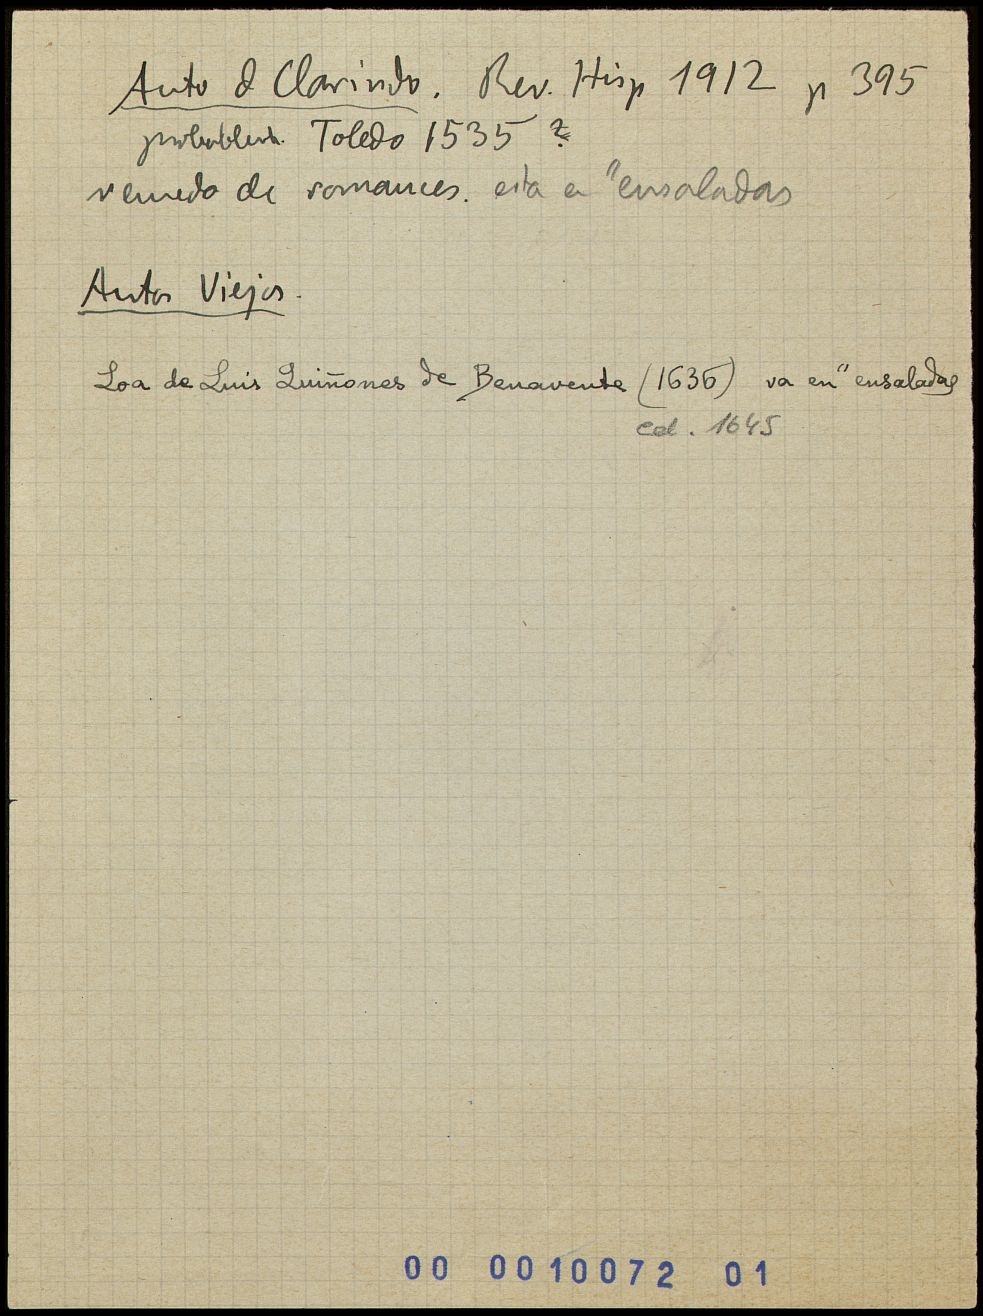 Auto d Clarindo. Rev. Hisp 1912 p 395
probablem. Toledo 1535 ?
remedo de romances. esta en "ensaladas
Autos Viejos.
Loa de Luis Quiñones de Benavente (1636) va en "ensaladas
ed. 1645
00 0010072 01